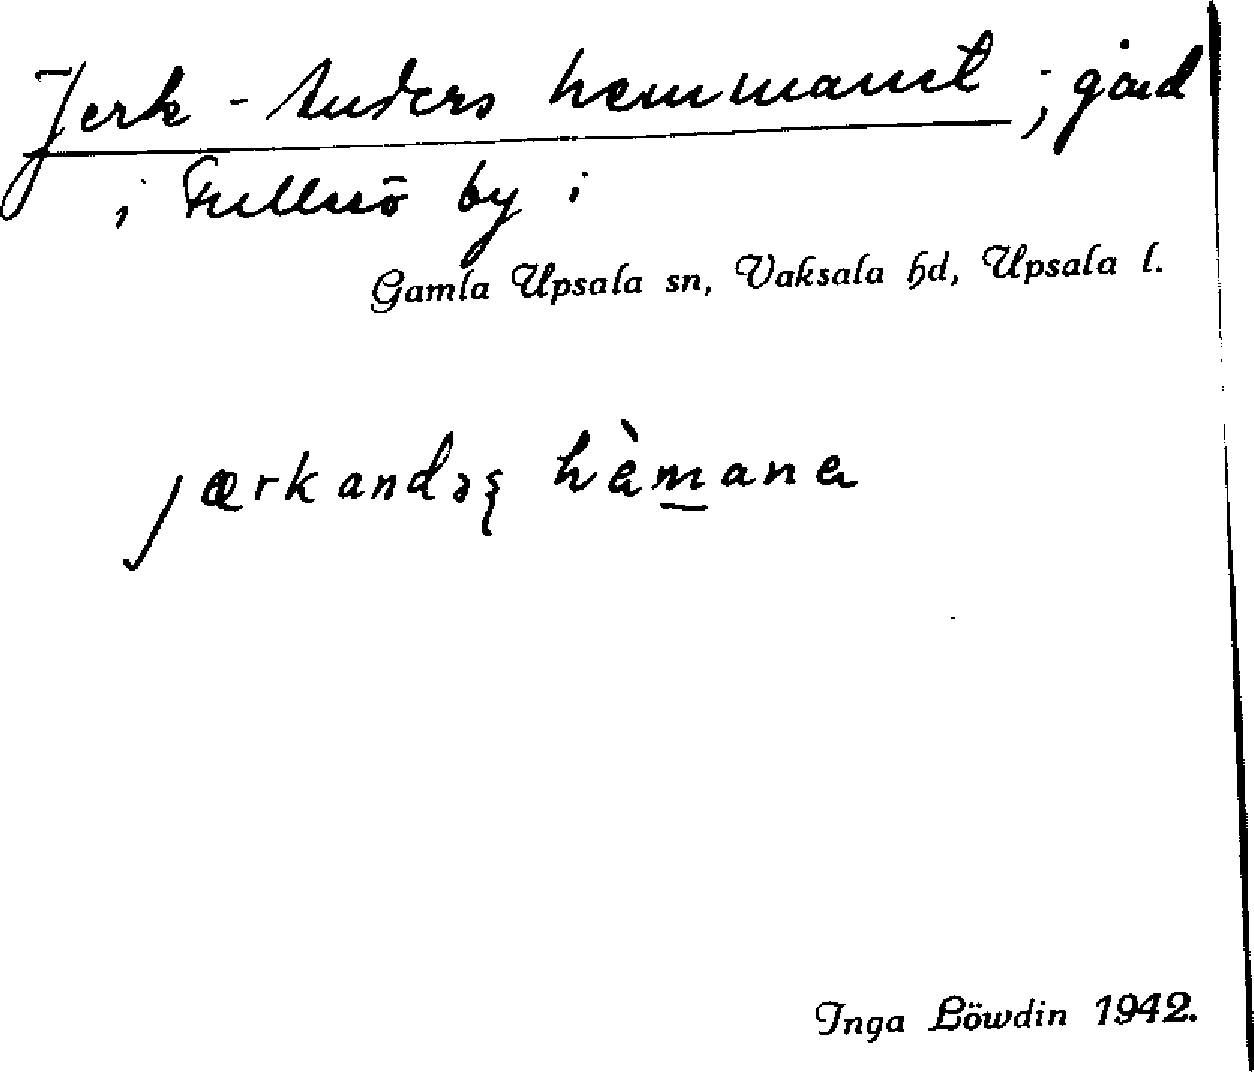 Jerk-Anders hemmanet; gård
i Fullerö by i
Gamla Upsala sn, Vaksala hd, Upsala l.
jærkandəʂ hèmana
Inga Löwdin 1942.